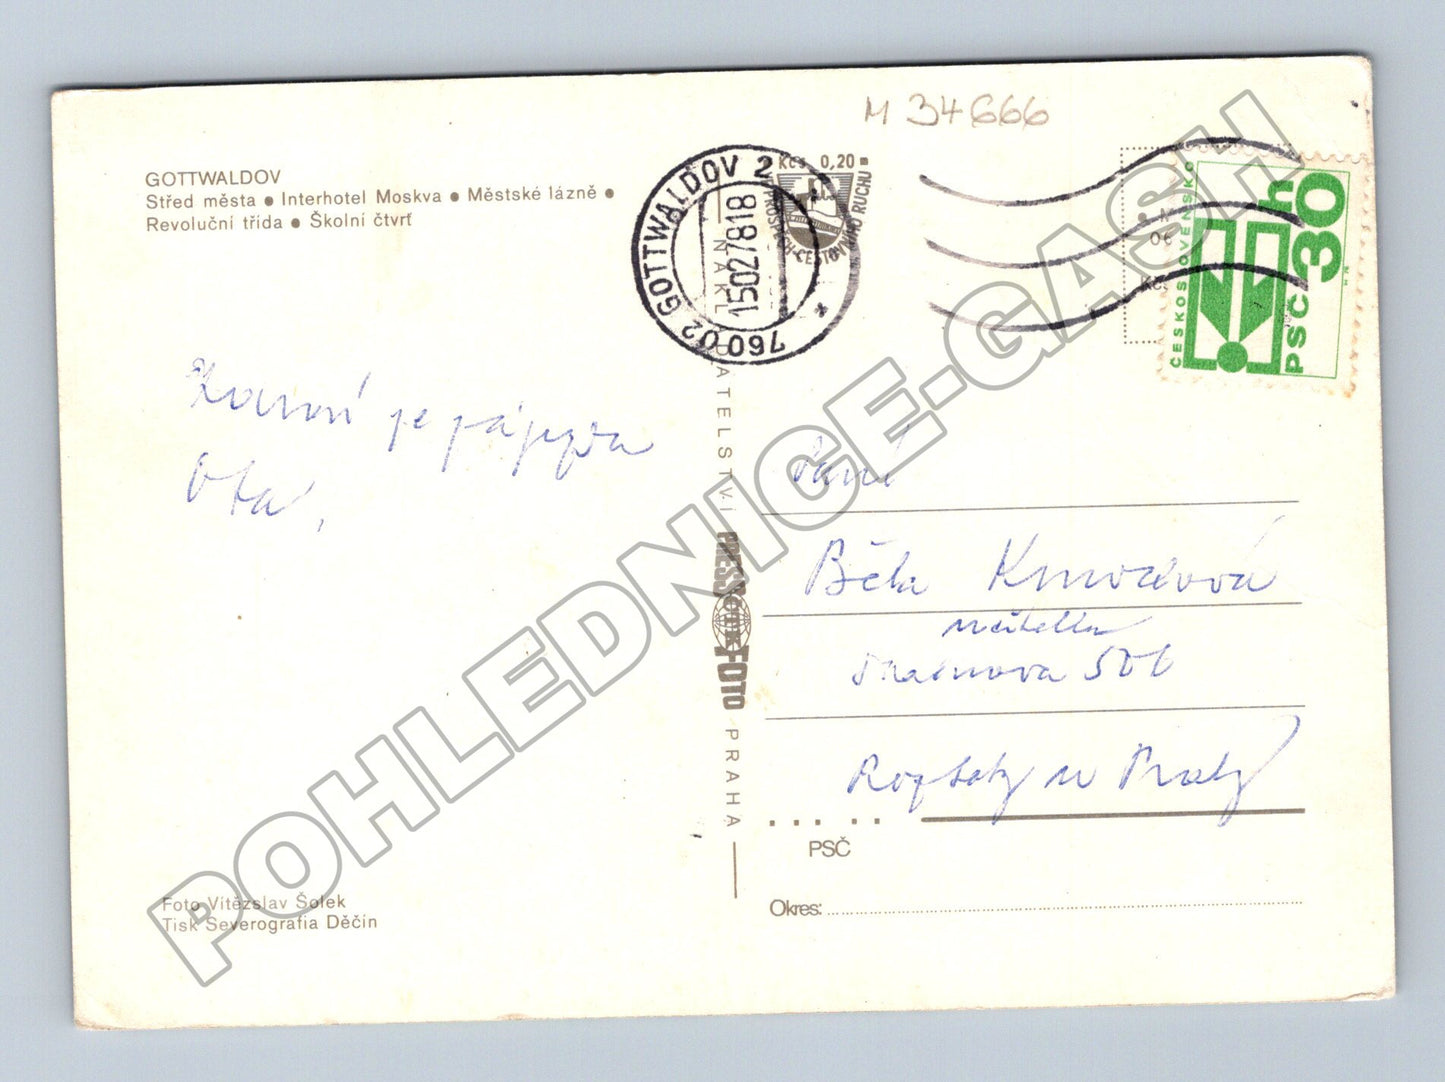 M 34666
GOTTWALDOV
Střed města ● Interhotel Moskva ● Městské lázně ●
Revoluční třída ● Školní čtvrť
760 02 GOTTWALDOV 2
15027818
Kčs 0,20
VE PROSPĚCH CESTOVNÍHO RUCHU
ČESKOSLOVENSKO
30 h
PSČ
NAKLADATELSTVÍ
PRESSFOTO
PRAHA
je
Ota,
Paní
Běla
učitelka
501
Roztoky u Prahy
PSČ
Okres:
Foto Vítězslav Šolek
Tisk Severografia Děčín
POHLEDNICE-GASH